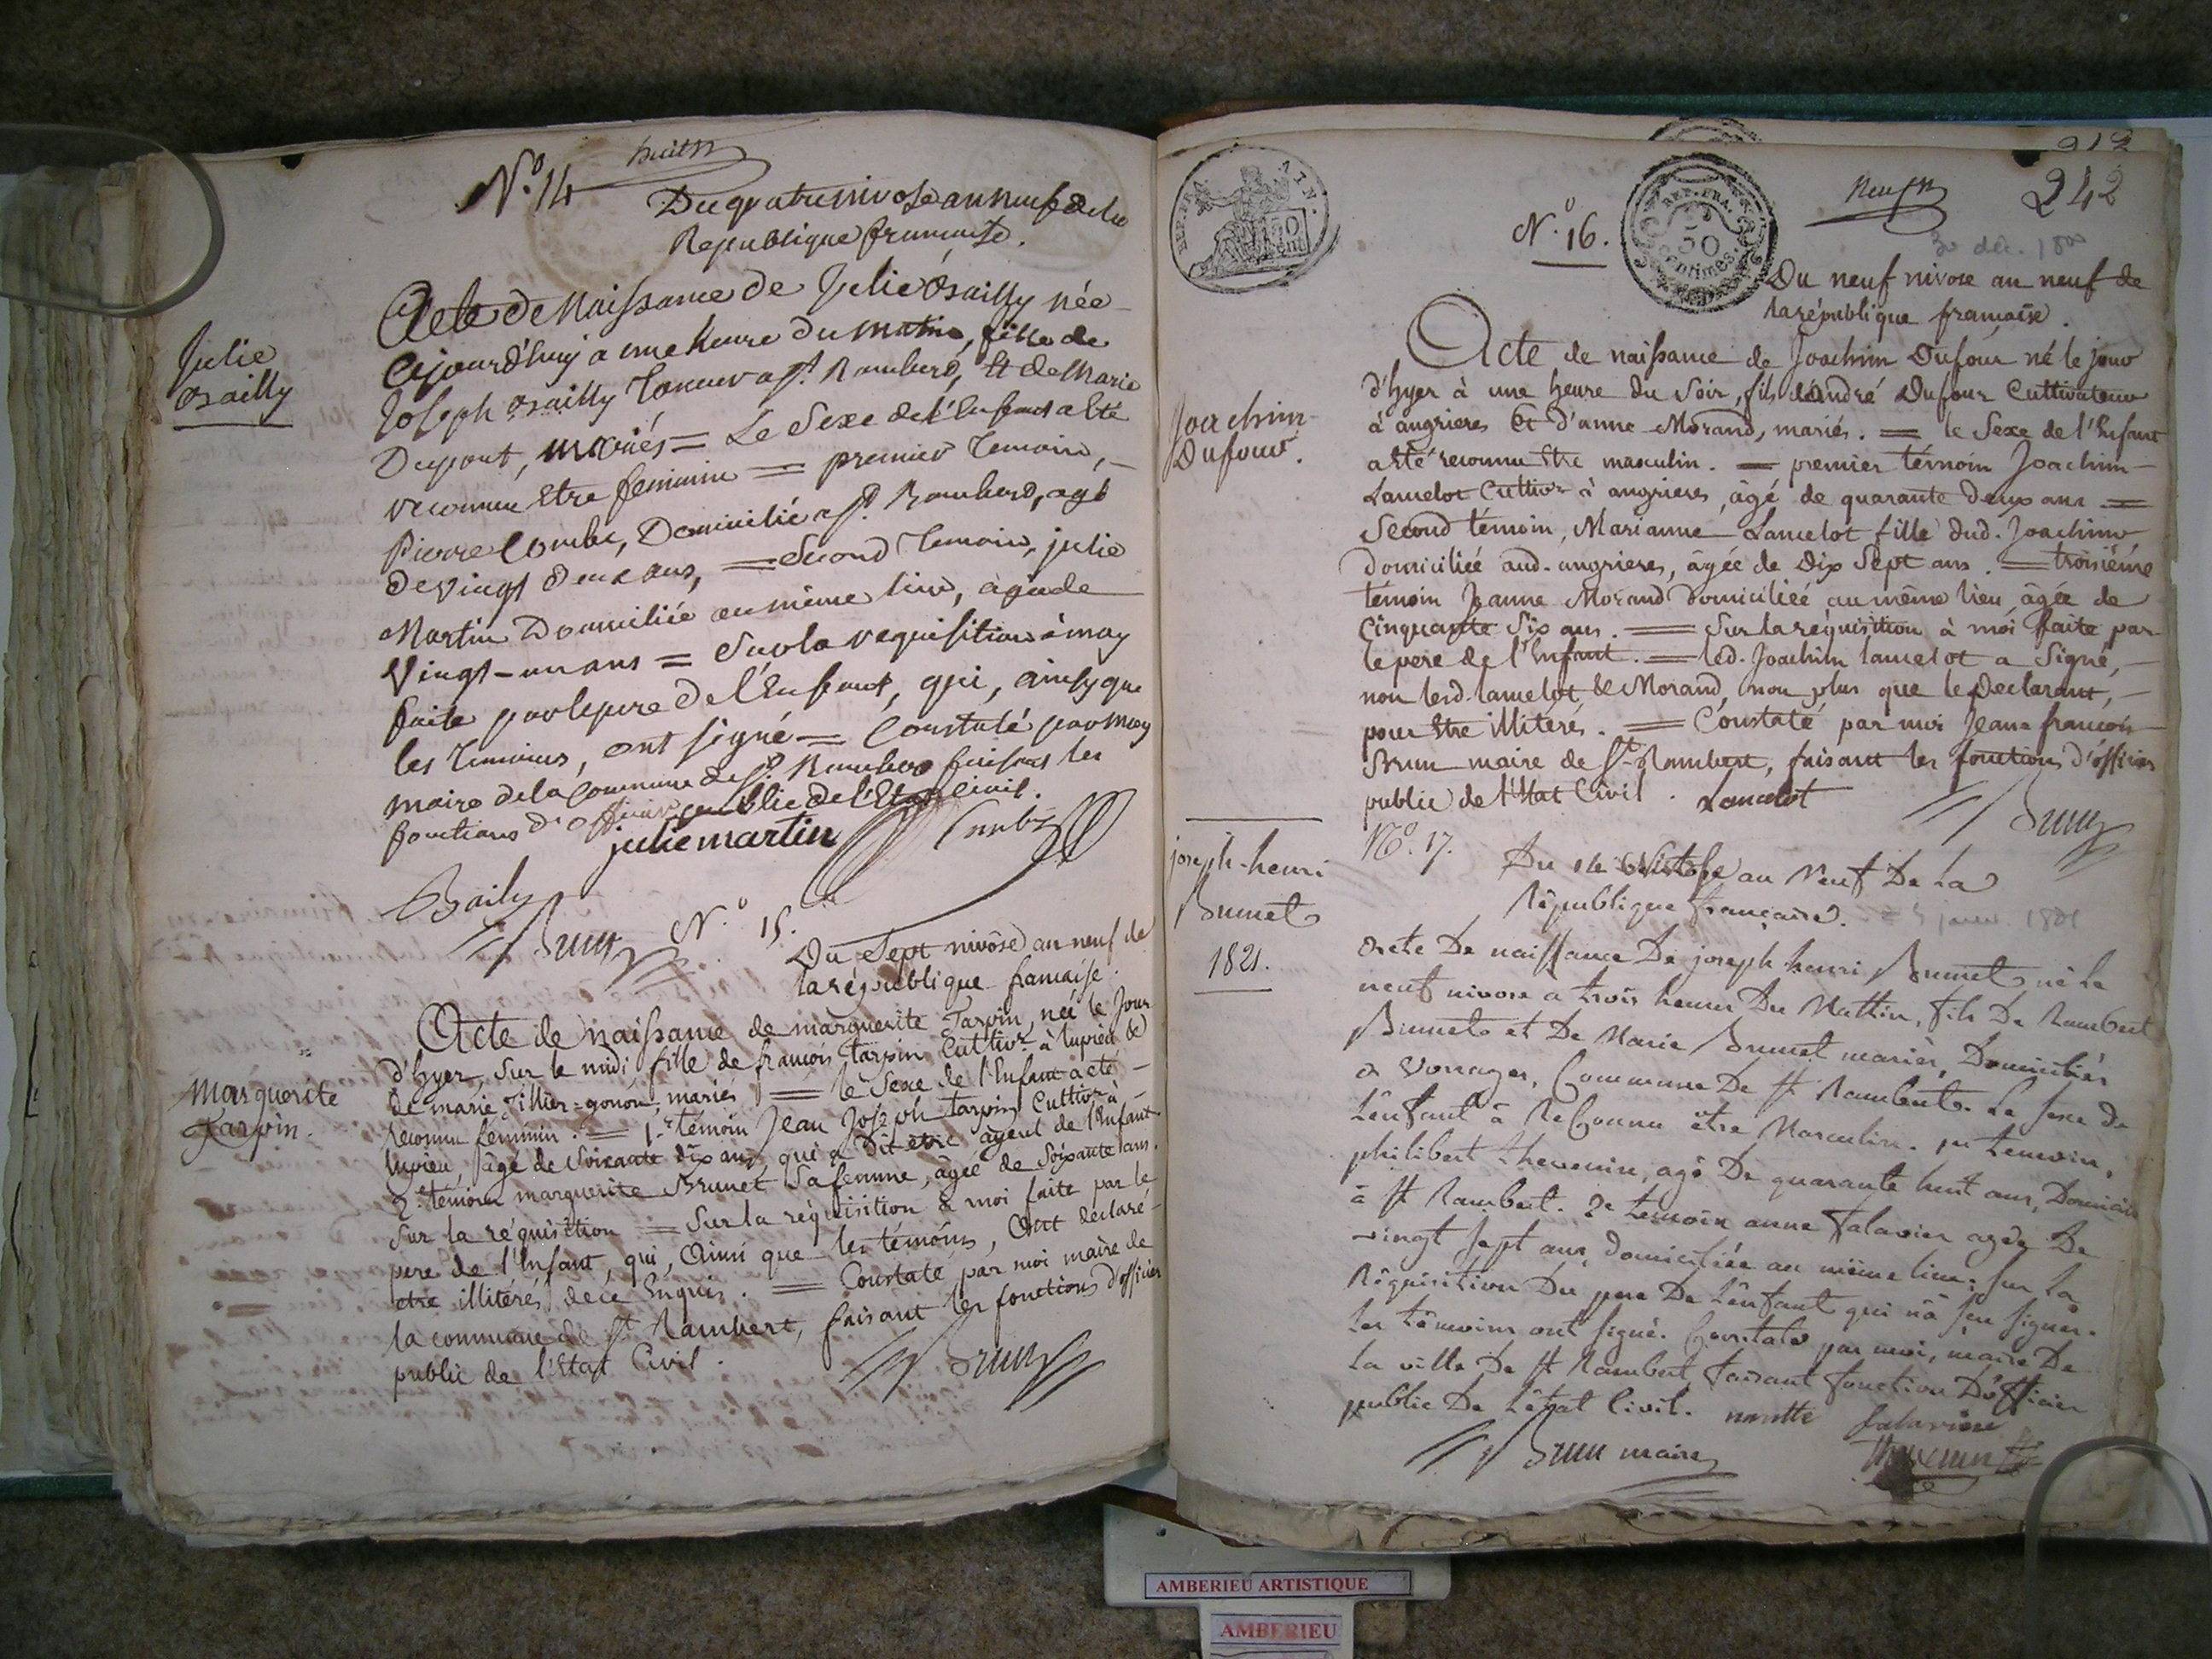 N.o 14
huit
Du quatre nivose an neuf de la
Republique francaise.
Julie
Bailly
Acte de Naissance de Julie Bailly née
cejourd'huy a une heure du matin, fille de
Joseph Bailly Taneur a St. Rambert, Et de Marie
Dupont, mariés = Le Sexe de l'Enfant a Eté
reconnu Etre feminin = premier Temoin,
Pierre Combe, Domicilié a St. Rambert, agé
de vingt deux ans, = Second Temoin, julie
Martin Domiciliée au même lieu, agée de
Vingt-un ans = Sur la requisition à moy
faite par le pere de l'Enfant, qui, ainsy que
les Temoins, ont signé = Constaté par moy
maire de la Commune de St. Rambert faisant les
fonctions d'officier public de l'Etat Civil.
julie martin Combe
Baily
Brun
N.o 15.
Du Sept nivôse an neuf de
la république francaise.
marguerite
Tarpin.
Acte de naissance de marguerite Tarpin, née le Jour
d'hyer, sur le midi fille de francois Tarpin Cultivr. à lupieu &
de marie Tillier=gonon, mariés = le Sexe de l'Enfant a eté
reconnu féminin. = 1.er témoin Jean Joseph Tarpin Cultivr à
lupieu, âgé de Soixante dix ans, qui a dit etre ayeul de l'Enfant.
2.e témoin marguerite Brunet Sa femme, âgée de Soixante ans.
Sur la réquisition = Sur la réquisition à moi faite par le
pere de l'Enfant, qui, Ainsi que les témoins, Ont déclaré
etre illitérés de ce Enquis. = Constaté par moi maire de
la commune de St. Rambert, faisant les fonctions d'officier
public de l'Etat Civil.
Brun
REP. FRA.
50
centimes
212
neuf
242
N.o 16.
30 déc. 1800
Du neuf nivose an neuf de
la république francaise.
Joachim
Dufour.
Acte de naissance de Joachim Dufour né le jour
d'hyer à une heure du Soir, fils d'andré Dufour Cultivateur
à angrieres Et d'anne Morand, mariés. = le Sexe de l'Enfant
a Eté reconnu Etre masculin. = premier témoin Joachim
Lancelot Cultivr à angrieres, âgé de quarante deux ans =
Second témoin, Marianne Lancelot fille dud. Joachim
domiciliée aud. angrieres, âgée de Dix Sept ans. = troisiéme
témoin Jeanne Morand domiciliée au même lieu, âgée de
Cinquante Six ans. = Sur la réquisition à moi faite par
le pere de l'Enfant. = led. Joachim lancelot a Signé,
non lesd. lancelot & Morand, non plus que le Declarant,
pour Etre illitérés. = Constaté par moi Jean=francois
Brun maire de St. Rambert, faisant les fonctions d'officier
public de l'Etat Civil. Lancelot
Brun
joseph-henri
Brunet
1821.
No. 17.
Du
an Neuf De La
République française. 5 janv 1801
Acte De naissance De joseph henri Brunet né Le
neuf nivose a trois heures Du Mattin, fils De Rambert
Brunet et De Marie Brunet mariés, Domiciliés
a Vorages, Commune De St Rambert. Le sexe de
L'enfant à Reconnu être Masculin. 1er temoin,
philibert thevenin, agé De quarante huit ans, Domicilié
à St Rambert. 2e temoin anne falavier agée De
vingt sept ans, domiciliée au même lieu. Sur La
Réquisition Du pere De L'enfant qui n'a seu signer.
Les têmoins ont signé. Constaté par moi, maire De
La ville De St Rambert, faisant fonction D'officier
public De L'état Civil. nanette falavier
Brun maire
thevenin
AMBERIEU ARTISTIQUE
AMBERIEU